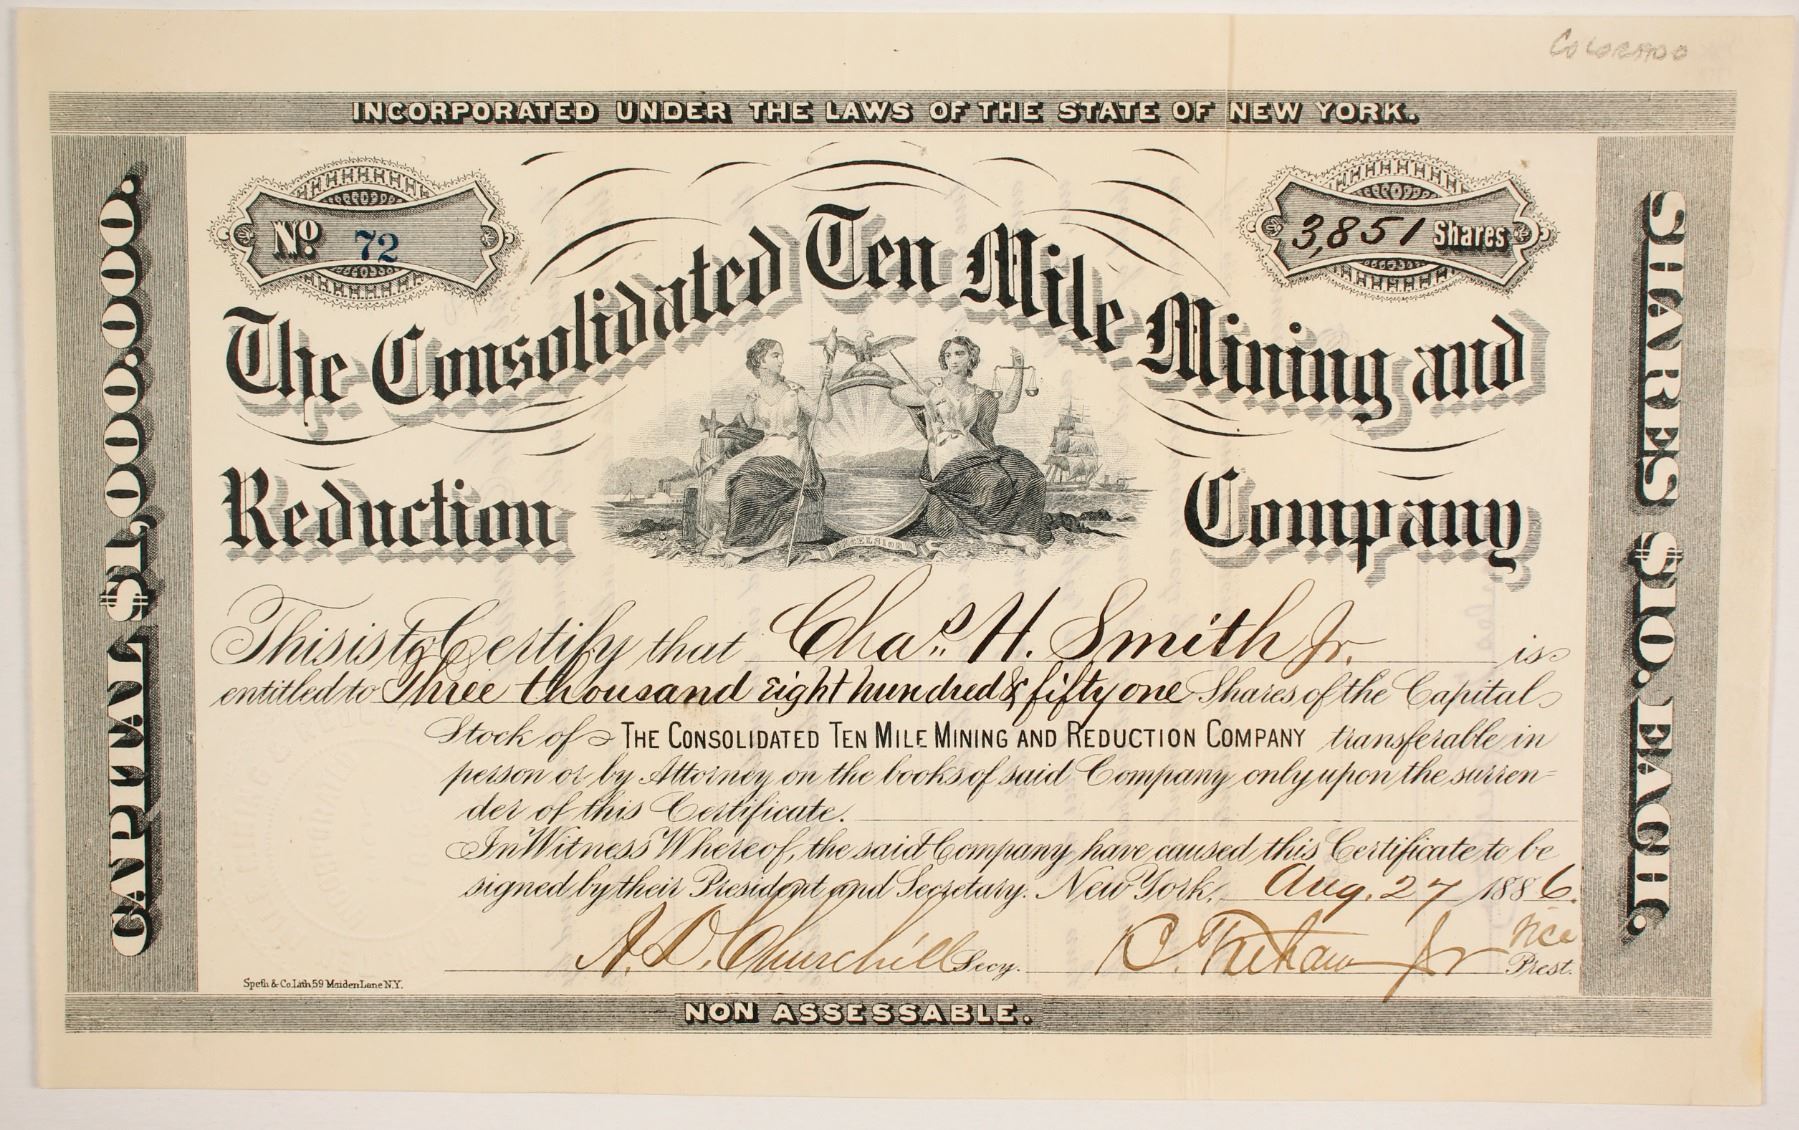 COLORADO
INCORPORATED UNDER THE LAWS OF THE STATE OF NEW YORK.
No. 72
3,851 Shares
CAPITAL $1,000,000.
SHARES $10. EACH.
The Consolidated Ten Mile Mining and
Reduction Company
EXCELSIOR
This is to Certify that Chas. H. Smith Jr. is
entitled to Three thousand Eight hundred & fifty one Shares of the Capital
Stock of THE CONSOLIDATED TEN MILE MINING AND REDUCTION COMPANY transferable in
person or by Attorney on the books of said Company only upon the surren=
der of this Certificate.
In Witness Whereof, the said Company have caused this Certificate to be
signed by their President and Secretary. New York, Aug. 27 1886.
A. D. Churchill Secy. Jr Vice Prest.
Speth & Co. Lith 59 Maiden Lane N.Y.
NON ASSESSABLE.